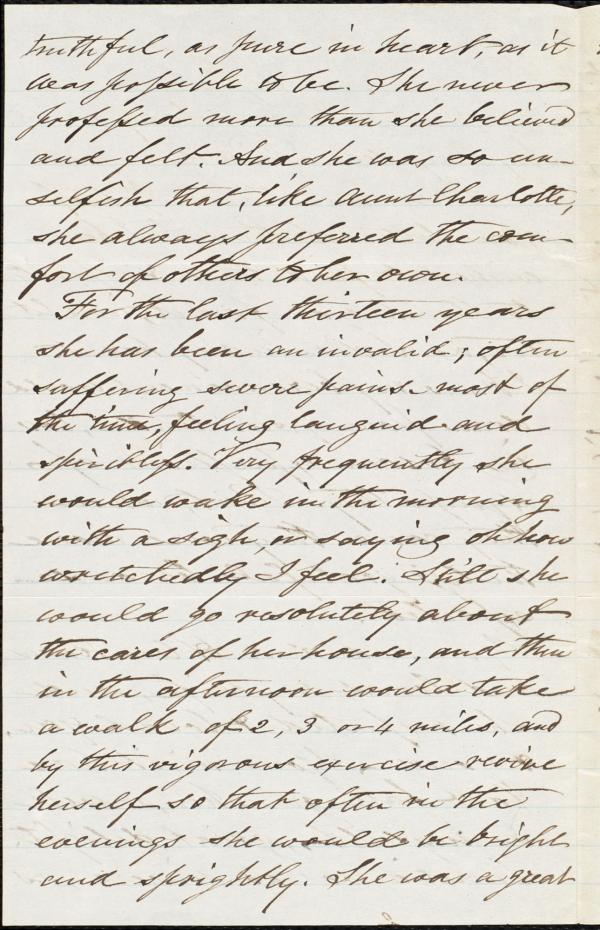 truthful, as pure in heart, as it
was possible to be. She never
professed more than she believed
and felt. And she was so un-
selfish that, like Aunt Charlotte,
she always preferred the com-
fort of others to her own.
For the last thirteen years
she has been an invalid; often
suffering severe pains most of
the time, feeling languid and
spiritless. Very frequently she
would wake in the morning
with a sigh, or saying oh how
wretchedly I feel. Still she
would go resolutely about
the cares of her house, and then
in the afternoon would take
a walk of 2, 3 or 4 miles, and
by this vigorous exercise revive
herself so that often in the
evenings she would be bright
and sprightly. She was a great